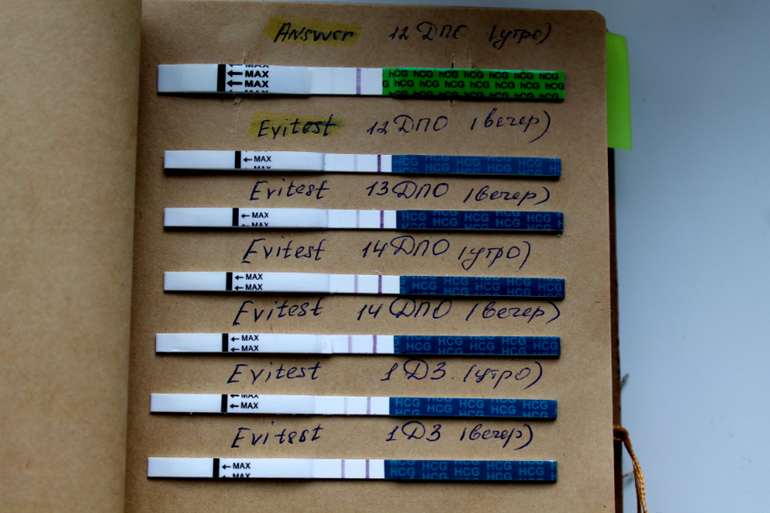 Answer 12 ДПО (утро)
← MAX
← MAX
← MAX
hCG hCG hCG hCG hCG hCG hCG
hCG hCG hCG hCG hCG hCG
hCG hCG hCG hCG hCG hCG
Evitest 12 ДПО (вечер)
← MAX
HCG HCG HCG HCG HCG
HCG HCG HCG HCG HCG
Evitest 13 ДПО (вечер)
← MAX
HCG HCG HCG HCG HCG
Evitest 14 ДПО (утро)
← MAX
← MAX
HCG HCG HCG HCG
HCG HCG HCG HCG
Evitest 14 ДПО (вечер)
← MAX
← MAX
HCG HCG HCG HCG HCG
HCG HCG HCG HCG HCG
Evitest 1 ДЗ. (утро)
← MAX
← MAX
HCG HCG HCG HCG HCG
HCG HCG HCG HCG
Evitest 1 ДЗ (вечер)
← MAX
← MAX
HCG HCG HCG HCG HCG
HCG HCG HCG HCG HCG